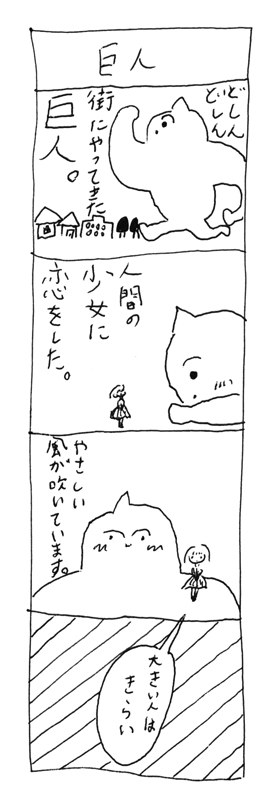 巨人
どしん
どしん
街にやってきた
巨人。
人間の
少女に
恋をした。
やさしい
風が吹いています。
大きい人は
きらい